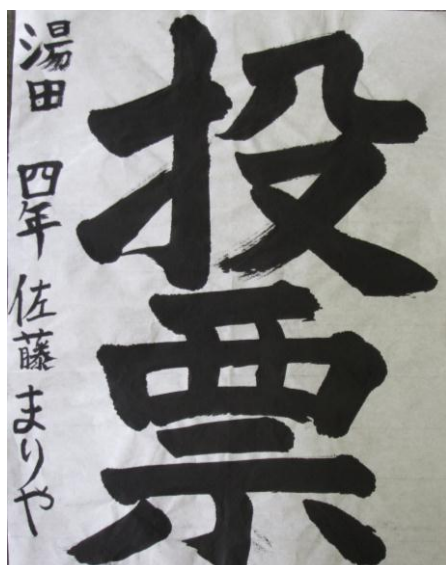 投票
湯田 四年 佐藤まりや